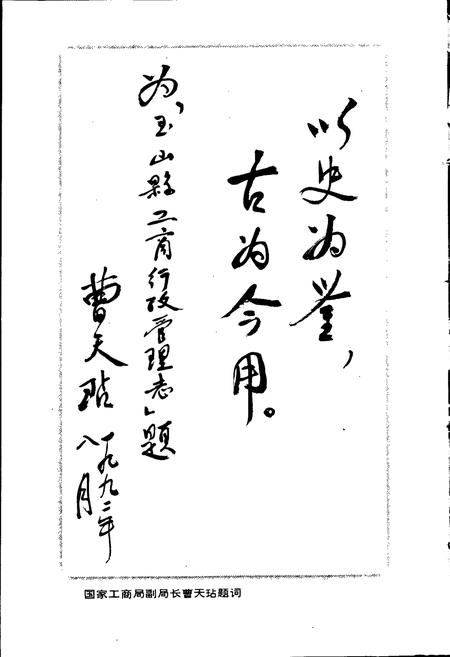 以史为鉴，
古为今用。
为“玉山县工商行政管理志”题
曹天玷
一九九二年
八月
国家工商局副局长曹天玷题词